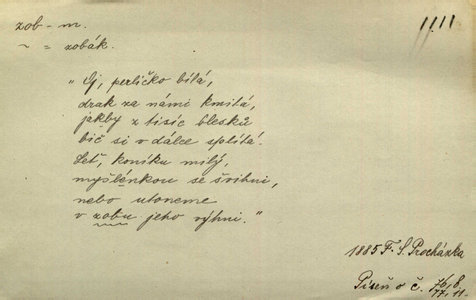 zob - m.
~ = zobák.
„Ej, perličko bílá,
drak za námi kmitá,
jakby z tisíc blesků
bič si v dálce splítá.
Leť, koníku milý,
myšlénkou se švihni,
nebo utoneme
v zobu jeho výhni."
1885 F. S. Procházka
Píseň o č. 76, 8.
77, 11.